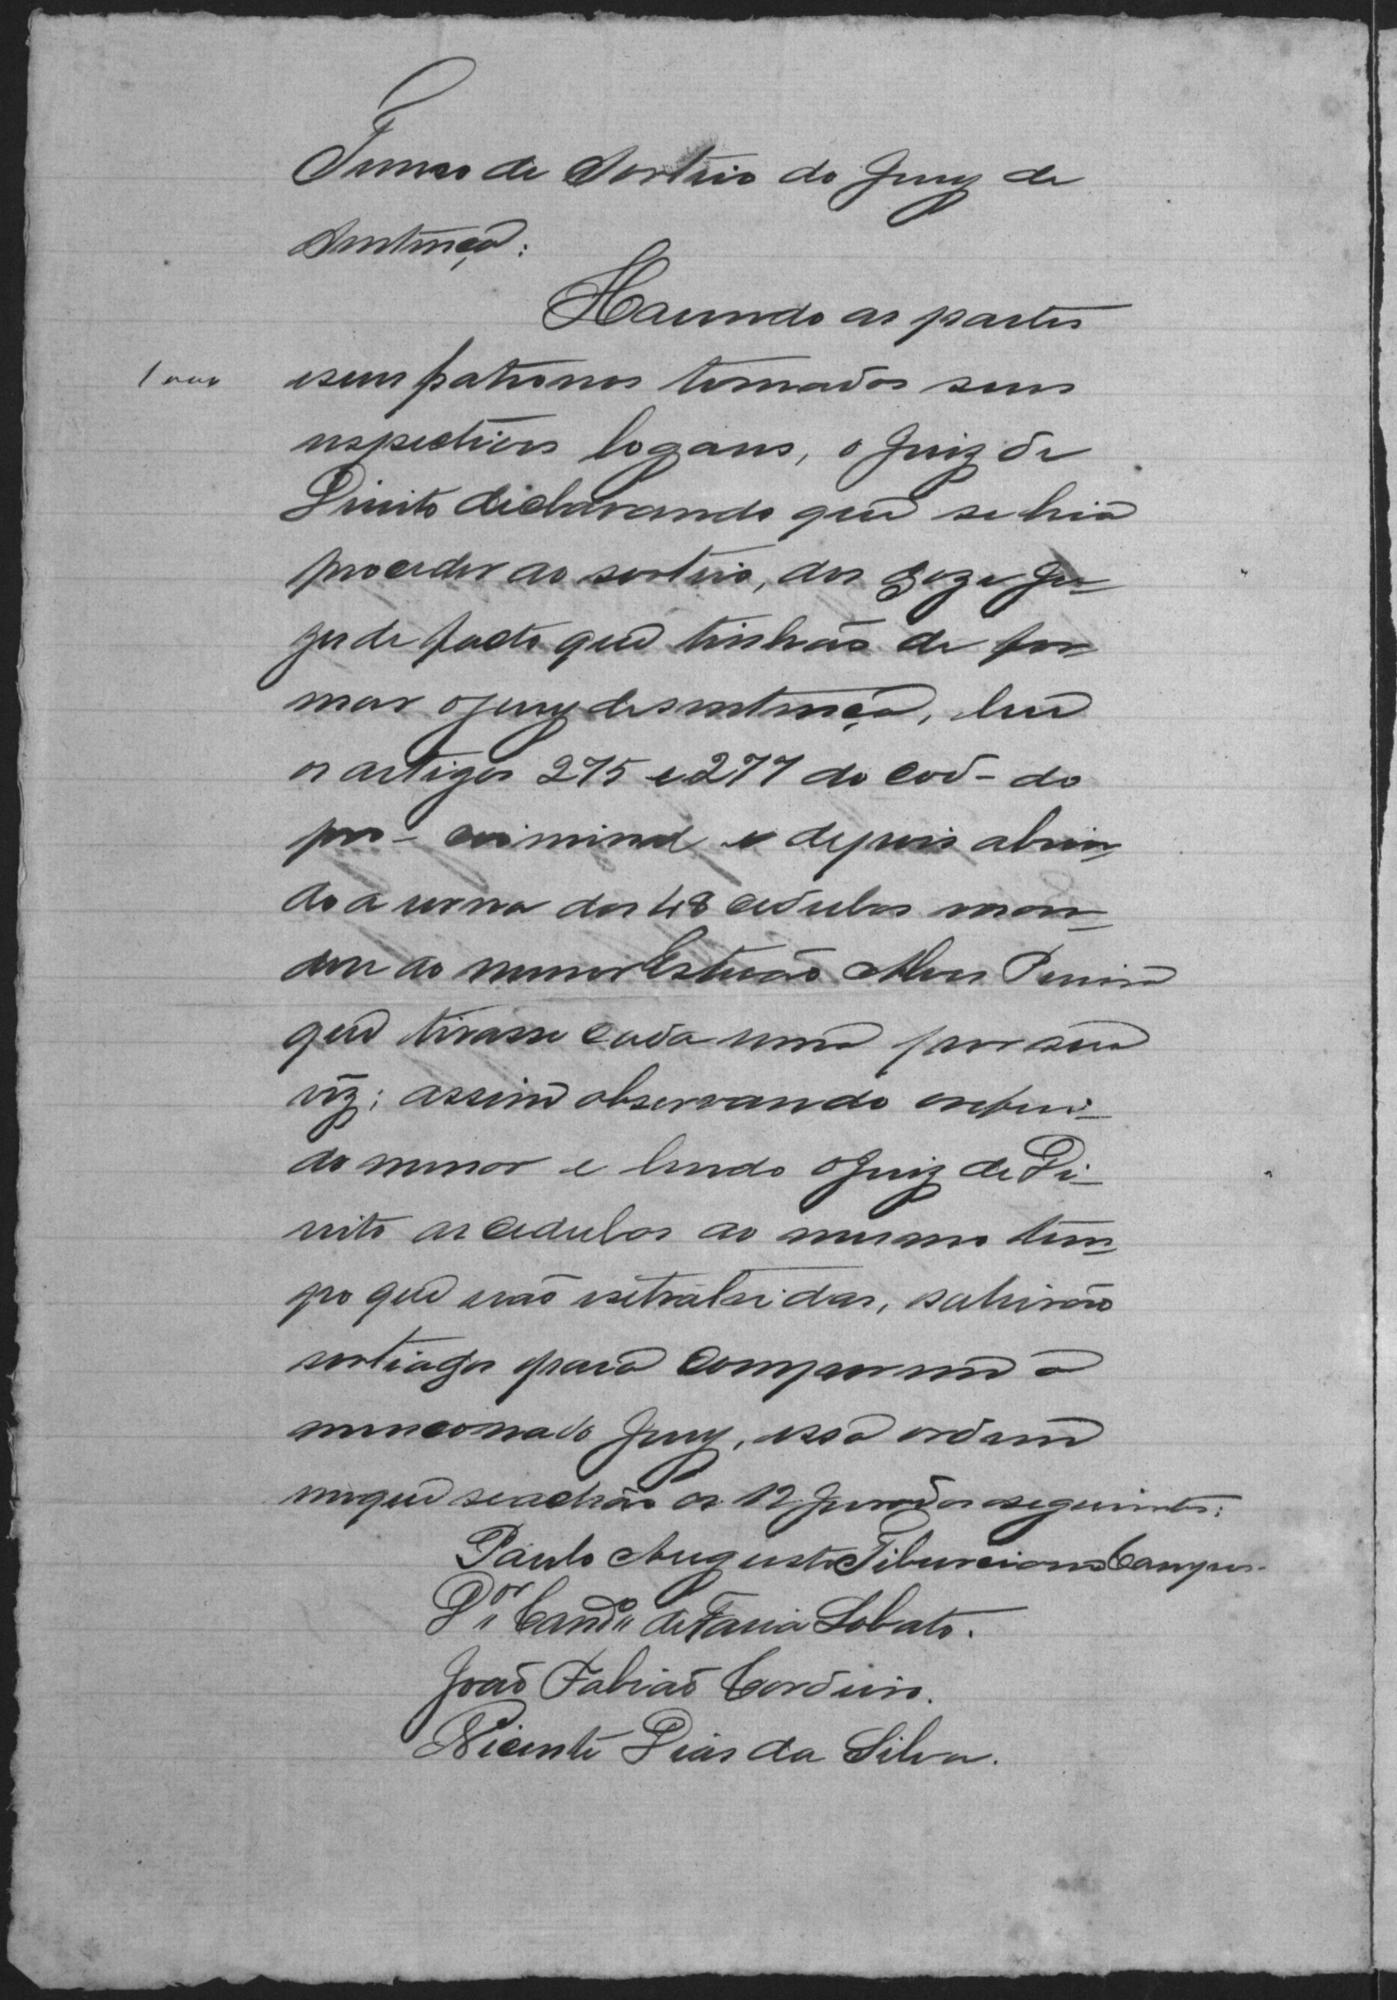 Termo de Sorteio do Jury de
Sentença:
Havendo as partes
1000 e seus patronos tomados seus
respectivos logares, o Juiz de
Direito declarando que se hia
proceder ao sorteio, dos doze Ju-
zes de facto que tinhão de for-
mar o jury de sentença, leu
os artigos 275 e 277 do cod- do
pro- criminal e depois abrin-
do a urna das 48 cedulas man-
dou ao menor Estevão Alves Pereira
que tirasse cada uma por sua
vez; assim observando o referi-
do menor e lendo o Juiz de Di-
reito as cedulas ao mesmo tem-
po que erão extrahidas, sahirão
sorteados para compor-se o
mencionado Jury, essa ordem
em que se achão os 12 Jurados seguintes:
Paulo Augusto Tiburcio Campos.
Dor Cando de Faria Lobato.
João Fabião Cordeiro.
Vicente Dias da Silva.